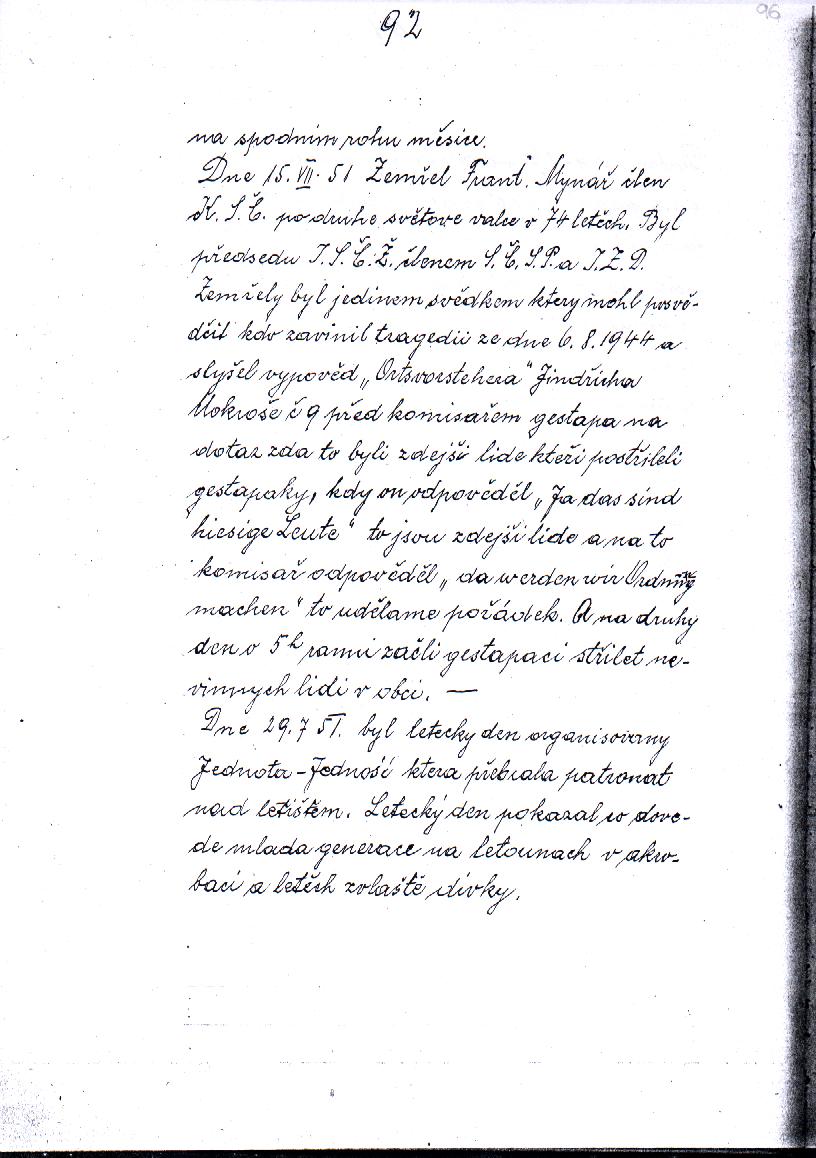 92
96
na spodním rohu měsíce.
Dne 15. VII. 51 Zemřel Frant. Mynář člen
K. S. Č. po druhe světove valce v 74 letěch. Byl
předsedu J. S. Č. Ž. členem S. Č. S. P. a J. Z. D.
Zemřely byl jedinem svědkem ktery mohl posvě-
dčit kdo zavinil tragedii ze dne 6. 8. 1944 a
slyšel vypověd „Ortsvorstehera" Jindřicha
Mokroše č 9 před komisařem gestapa na
dotaz zda to byli zdejši lide kteři postřileli
gestapaky, kdy on odpověděl „Ja das sind
hiesige Leute" to jsou zdejši lide a na to
komisař odpověděl „da werden wir Ordnung
machen" to udělame pořádek. A na druhy
den o 5h ranni začli gestapaci střilet ne-
vinnych lidi v obci. —
Dne 29. 7 51. byl letecky den organisovany
Jednota - Jednosť ktera přebrala patronat
nad letištěm. Letecký den pokazal co dove-
de mlada generace na letounach v akro-
baci a letěch zvlaště divky.